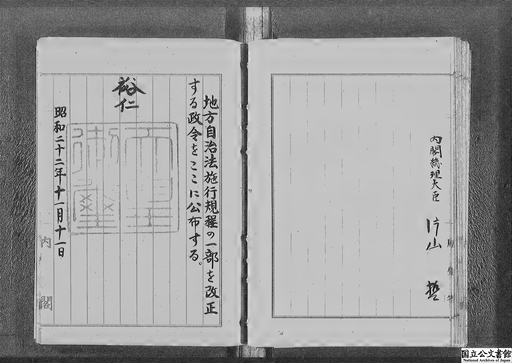 内閣総理大臣 片山 哲
地方自治法施行規程の一部を改正
する政令をここに公布する。
裕仁
天皇御璽
昭和二十二年十一月十一日
内閣
国立公文書館
National Archives of Japan